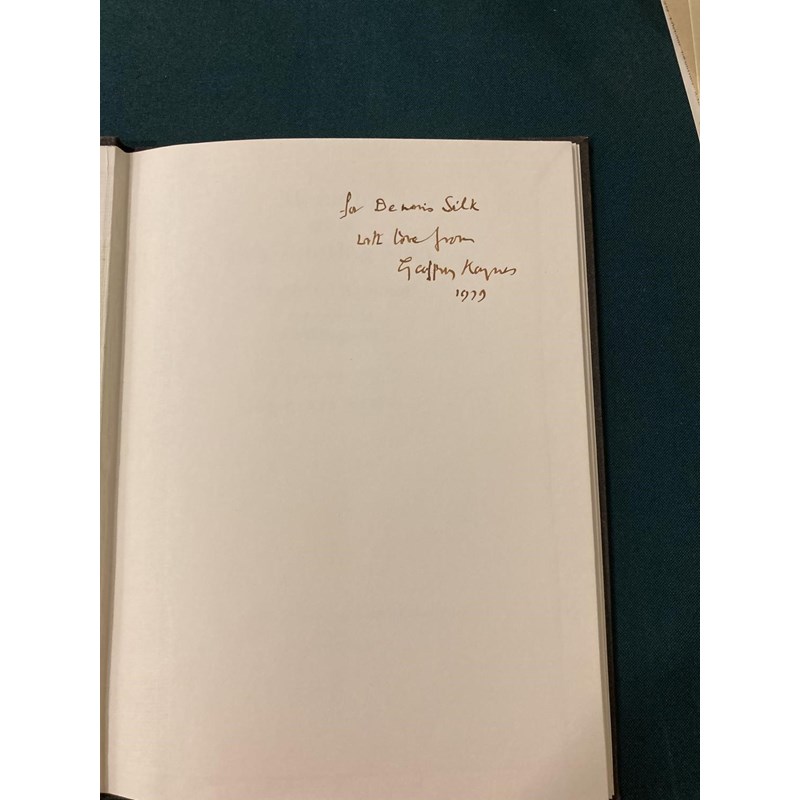 for Dennis Silk
with love from
Geoffrey Keynes
1979